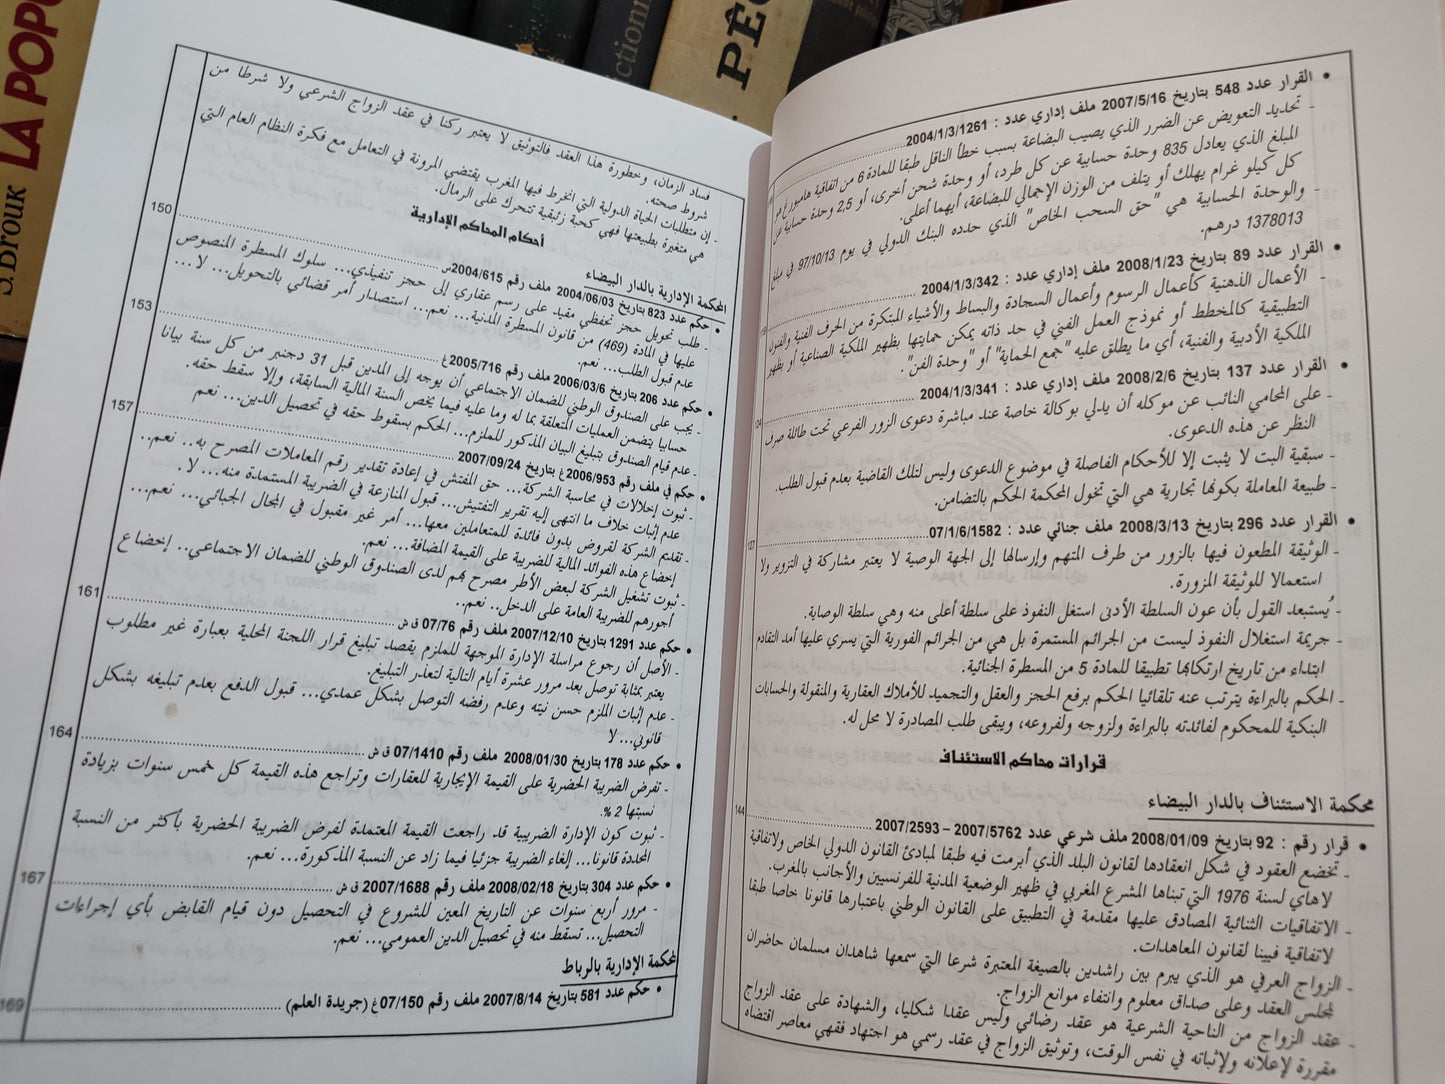 S.Drouk
LA POPU
ctionn
PÊC
• القرار عدد 548 بتاريخ 2007/5/16 ملف إداري عدد : 2004/1/3/1261
- تحديد التعويض عن الضرر الذي يصيب البضاعة بسبب خطأ الناقل طبقا للمادة 6 من اتفاقية هامبورغ هو
المبلغ الذي يعادل 835 وحدة حسابية عن كل طرد، أو وحدة شحن أخرى، أو 2,5 وحدة حسابية عن
كل كيلو غرام يهلك أو يتلف من الوزن الإجمالي للبضاعة، أيهما أعلى.
- والوحدة الحسابية هي "حق السحب الخاص" الذي حدده البنك الدولي في يوم 97/10/13 في مبلغ
1378013 درهم.
• القرار عدد 89 بتاريخ 2008/1/23 ملف إداري عدد : 2004/1/3/342
- الأعمال الذهنية كأعمال الرسوم وأعمال السجادة والبساط والأشياء المبتكرة من الحرف الفنية والفنون
التطبيقية كالمخطط أو نموذج العمل الفني في حد ذاته يمكن حمايتها بظهير الملكية الصناعية أو بظهير
الملكية الأدبية والفنية، أي ما يطلق عليه "جمع الحماية" أو "وحدة الفن".
• القرار عدد 137 بتاريخ 2008/2/6 ملف إداري عدد : 2004/1/3/341
- على المحامي النائب عن موكله أن يدلي بوكالة خاصة عند مباشرة دعوى الزور الفرعي تحت طائلة صرف
النظر عن هذه الدعوى.
- سبقية البت لا يثبت إلا للأحكام الفاصلة في موضوع الدعوى وليس لتلك القاضية بعدم قبول الطلب.
- طبيعة المعاملة بكونها تجارية هي التي تخول المحكمة الحكم بالتضامن.
• القرار عدد 296 بتاريخ 2008/3/13 ملف جنائي عدد : 07/1/6/1582
127
- الوثيقة المطعون فيها بالزور من طرف المتهم وإرسالها إلى الجهة الوصية لا يعتبر مشاركة في التزوير ولا
استعمالا للوثيقة المزورة.
- يُستبعد القول بأن عون السلطة الأدنى استغل النفوذ على سلطة أعلى منه وهي سلطة الوصاية.
- جريمة استغلال النفوذ ليست من الجرائم المستمرة بل هي من الجرائم الفورية التي يسري عليها أمد التقادم
ابتداء من تاريخ ارتكابها تطبيقا للمادة 5 من المسطرة الجنائية.
- الحكم بالبراءة يترتب عنه تلقائيا الحكم برفع الحجز والعقل والتجميد للأملاك العقارية والمنقولة والحسابات
البنكية للمحكوم لفائدته بالبراءة ولزوجه ولفروعه، ويبقى طلب المصادرة لا محل له.
قرارات محاكم الاستئناف
محكمة الاستئناف بالدار البيضاء
• قرار رقم : 92 بتاريخ 2008/01/09 ملف شرعي عدد 2007/5762 – 2007/2593 144
- تخضع العقود في شكل انعقادها لقانون البلد الذي أبرمت فيه طبقا لمبادئ القانون الدولي الخاص ولاتفاقية
لاهاي لسنة 1976 التي تبناها المشرع المغربي في ظهير الوضعية المدنية للفرنسيين والأجانب بالمغرب.
- الاتفاقيات الثنائية المصادق عليها مقدمة في التطبيق على القانون الوطني باعتبارها قانونا خاصا طبقا
لاتفاقية فيينا لقانون المعاهدات.
- الزواج العرفي هو الذي يبرم بين راشدين بالصيغة المعتبرة شرعا التي سمعها شاهدان مسلمان حاضران
لمجلس العقد وعلى صداق معلوم وانتفاء موانع الزواج.
- عقد الزواج من الناحية الشرعية هو عقد رضائي وليس عقدا شكليا، والشهادة على عقد الزواج
مقررة لإعلانه ولإثباته في نفس الوقت، وتوثيق الزواج في عقد رسمي هو اجتهاد فقهي معاصر اقتضاه
فساد الزمان، وخطورة هذا العقد فالتوثيق لا يعتبر ركنا في عقد الزواج الشرعي ولا شرطا من
شروط صحته.
- إن متطلبات الحياة الدولية التي انخرط فيها المغرب يقتضي المرونة في التعامل مع فكرة النظام العام التي
هي متغيرة بطبيعتها فهي كحبة زئبقية تتحرك على الرمال.
أحكام المحاكم الإدارية
المحكمة الإدارية بالدار البيضاء
• حكم عدد 823 بتاريخ 2004/06/03 ملف رقم 2004/615س 150
- طلب تحويل حجز تحفظي مقيد على رسم عقاري إلى حجز تنفيذي... سلوك المسطرة المنصوص
عليها في المادة (469) من قانون المسطرة المدنية... نعم.. استصدار أمر قضائي بالتحويل... لا...
عدم قبول الطلب... نعم.
• حكم عدد 206 بتاريخ 2006/03/6 ملف رقم 2005/716غ 153
- يجب على الصندوق الوطني للضمان الاجتماعي أن يوجه إلى المدين قبل 31 دجنبر من كل سنة بيانا
حسابيا يتضمن العمليات المتعلقة بما له وما عليه فيما يخص السنة المالية السابقة، وإلا سقط حقه.
- عدم قيام الصندوق بتبليغ البيان المذكور للملزم... الحكم بسقوط حقه في تحصيل الدين... نعم
• حكم في ملف رقم 2006/953غ بتاريخ 2007/09/24 157
- ثبوت إخلالات في محاسبة الشركة... حق المفتش في إعادة تقدير رقم المعاملات المصرح به.. نعم.
عدم إثبات خلاف ما انتهى إليه تقرير التفتيش... قبول المنازعة في الضريبة المستمدة منه... لا.
- تقديم الشركة لقروض بدون فائدة للمتعاملين معها... أمر غير مقبول في المجال الجبائي... نعم...
إخضاع هذه الفوائد المالية للضريبة على القيمة المضافة... نعم.
- ثبوت تشغيل الشركة لبعض الأطر مصرح بهم لدى الصندوق الوطني للضمان الاجتماعي.. إخضاع
أجورهم للضريبة العامة على الدخل.. نعم..
• حكم عدد 1291 بتاريخ 2007/12/10 ملف رقم 07/76 ق ش 161
- الأصل أن رجوع مراسلة الإدارة الموجهة للملزم بقصد تبليغ قرار اللجنة المحلية بعبارة غير مطلوب
يعتبر بمثابة توصل بعد مرور عشرة أيام التالية لتعذر التبليغ.
- عدم إثبات الملزم حسن نيته وعدم رفضه التوصل بشكل عمدي... قبول الدفع بعدم تبليغه بشكل
قانوني... لا
• حكم عدد 178 بتاريخ 2008/01/30 ملف رقم 07/1410 ق ش 164
- تفرض الضريبة الحضرية على القيمة الإيجارية للعقارات وتراجع هذه القيمة كل خمس سنوات بزيادة
نسبتها 2 %.
- ثبوت كون الإدارة الضريبية قد راجعت القيمة المعتمدة لفرض الضريبة الحضرية بأكثر من النسبة
المحددة قانونا... إلغاء الضريبة جزئيا فيما زاد عن النسبة المذكورة... نعم.
• حكم عدد 304 بتاريخ 2008/02/18 ملف رقم 2007/1688 ق ش 167
- مرور أربع سنوات عن التاريخ المعين للشروع في التحصيل دون قيام القابض بأي إجراءات
التحصيل... تسقط منه في تحصيل الدين العمومي... نعم.
المحكمة الإدارية بالرباط
• حكم عدد 581 بتاريخ 2007/8/14 ملف رقم 07/150غ (جريدة العلم) 169